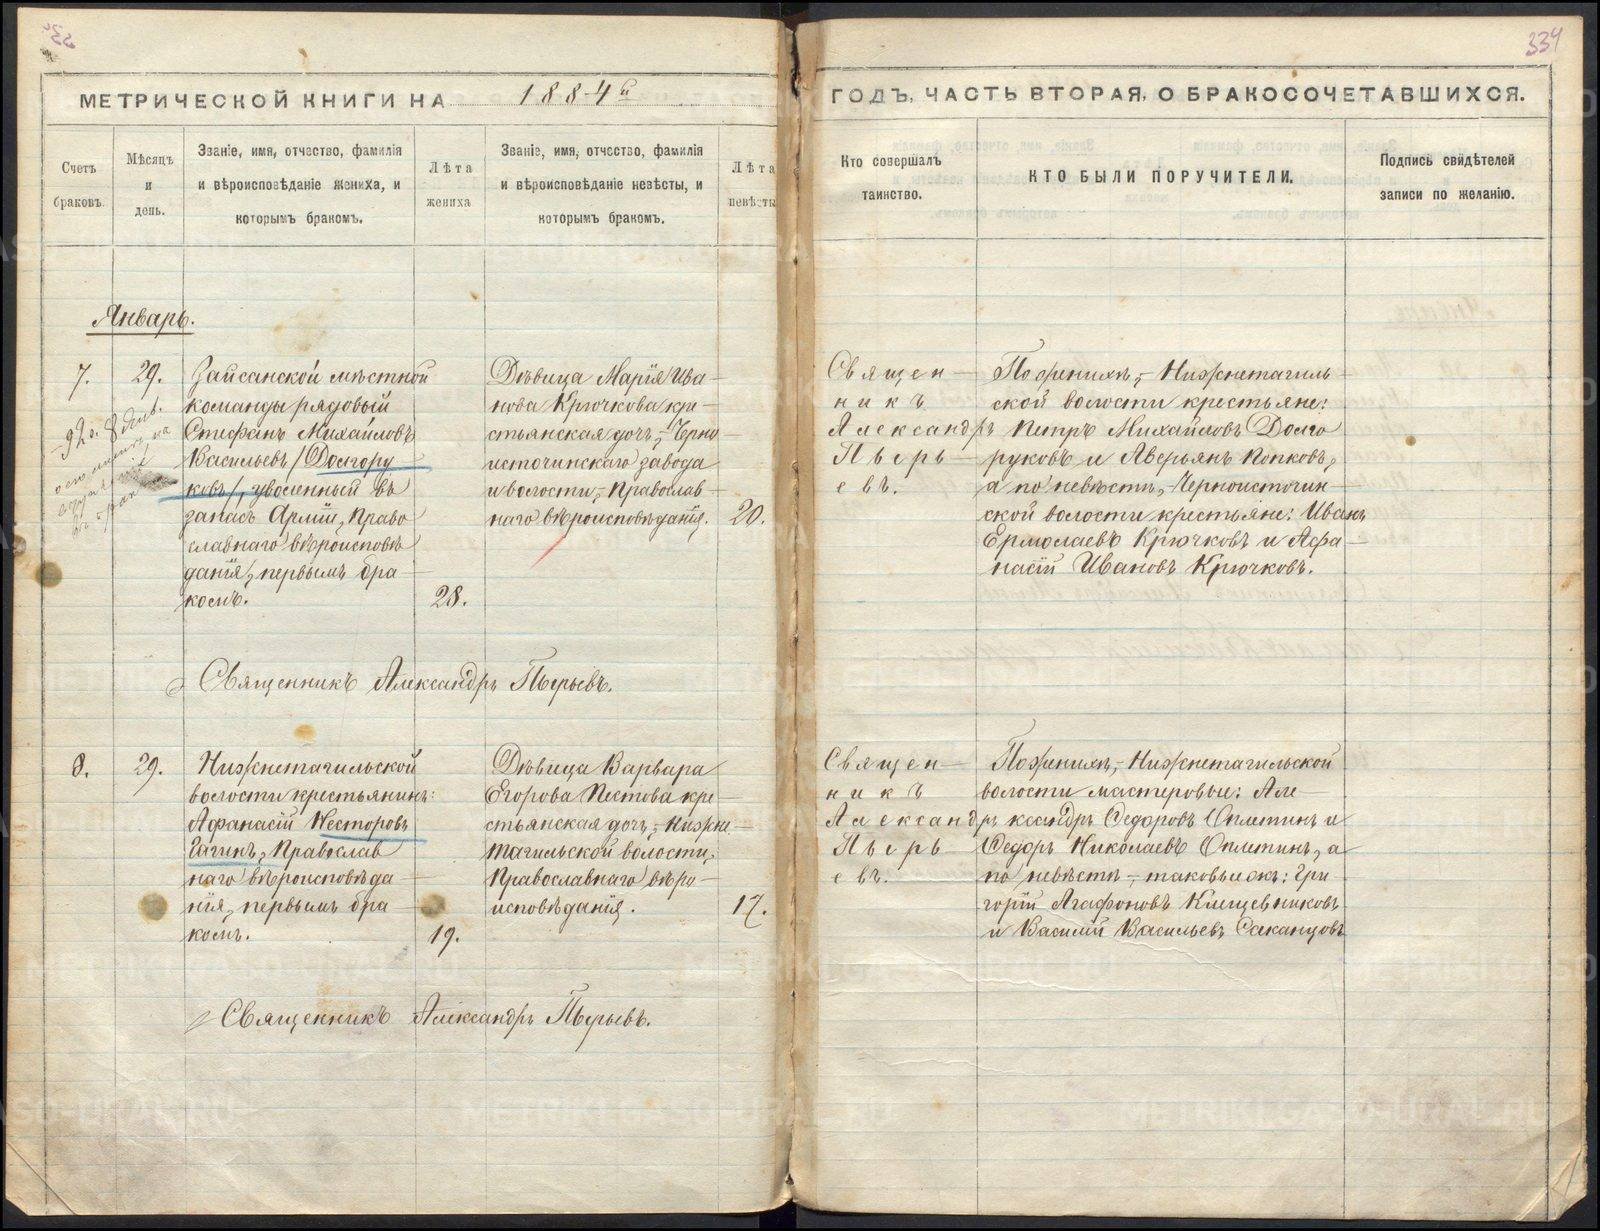 334
МЕТРИЧЕСКОЙ КНИГИ НА 1884й ГОДЪ, ЧАСТЬ ВТОРАЯ, О БРАКОСОЧЕТАВШИХСЯ.
Счетъ
браковъ.
Мѣсяцъ
и
день.
Званіе, имя, отчество, фамилія
и вѣроисповѣданіе жениха, и
которымъ бракомъ.
Лѣта
жениха
Званіе, имя, отчество, фамилія
и вѣроисповѣданіе невѣсты, и
которымъ бракомъ.
Лѣта
невѣсты
Кто совершалъ
таинство.
КТО БЫЛИ ПОРУЧИТЕЛИ.
Подпись свидѣтелей
записи по желанію.
Январь.
7.
29.
Зайсанской мѣстной
команды рядовый
Стефанъ Михайловъ
Васильевъ /Долгору
ковъ/, уволенный въ
запасъ Арміи, Право
славнаго вѣроисповѣ
данія, первымъ бра—
комъ.
28.
Дѣвица Марія Ива—
нова Крючкова кре—
стьянская дочь,- Черно—
источинскаго завода
и волости, Православ—
наго вѣроисповѣданія.
20.
Священ—
никъ
Александръ
Пырь—
евъ.
По женихѣ,- Нижнетагиль—
ской волости крестьяне:
Петръ Михайловъ Долго
руковъ и Аверьянъ Попковъ,
а по невѣстѣ,- Черноисточин—
ской волости крестьяне: Иванъ
Ермолаевъ Крючковъ и Афа—
насій Ивановъ Крючковъ.
Священникъ Александръ Пырьевъ.
8.
29.
Нижнетагильской
волости крестьянинъ:
Афанасій Несторовъ
Гагинъ, Православ
наго вѣроисповѣда—
нія, первымъ бра—
комъ.
19.
Дѣвица Варвара
Егорова Пестова кре—
стьянская дочь,- Нижне—
тагильской волости,
Православнаго вѣро—
исповѣданія.
17.
Священ—
никъ
Александръ
Пырь—
евъ.
По женихѣ,- Нижнетагильской
волости мастеровые: Але—
ксандръ Ѳедоровъ Оплетинъ и
Ѳедоръ Николаевъ Оплетинъ, а
по невѣстѣ,- таковые жъ: Гри—
горій Агафоновъ Клещевниковъ
и Василій Васильевъ Саканцовъ
Священникъ Александръ Пырьевъ.
METRIKI.GASO-URAL.RU